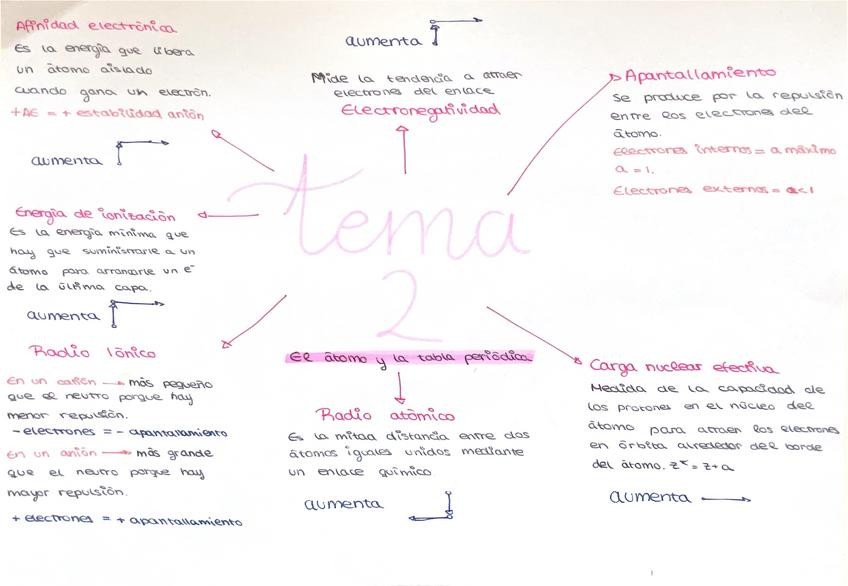 Afinidad electrónica
Es la energía que libera
un átomo aislado
cuando gana un electrón.
+AE = + estabilidad anión
aumenta
aumenta
Mide la tendencia a atraer
electrones del enlace
Electronegatividad
Apantallamiento
Se produce por la repulsión
entre los electrones del
átomo.
Electrones internos = a máximo
a = 1.
Electrones externos = a<1
tema
2
El átomo y la tabla periódica
Energía de ionización
Es la energía mínima que
hay que suministrarle a un
átomo para arrancarle un e⁻
de la última capa.
aumenta
Radio Iónico
En un catión → más pequeño
que el neutro porque hay
menor repulsión.
- electrones = - apantallamiento
En un anión → más grande
que el neutro porque hay
mayor repulsión.
+ electrones = + apantallamiento
Radio atómico
Es la mitad distancia entre dos
átomos iguales unidos mediante
un enlace químico.
aumenta
Carga nuclear efectiva
Medida de la capacidad de
los protones en el núcleo del
átomo para atraer los electrones
en órbita alrededor del borde
del átomo. z* = z+a
aumenta →